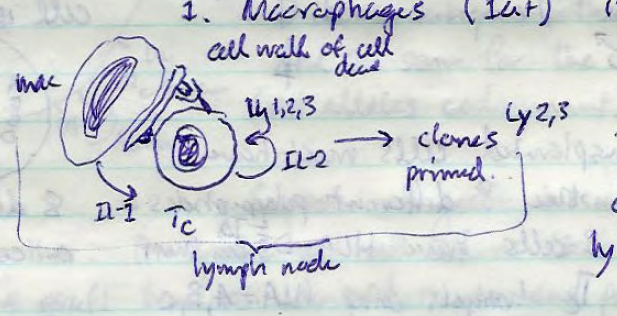 1. Macrophages (Ia+)
cell wall of cell
dead
mac
Ly1,2,3
Ly2,3
IL-2
clones
primed.
IL-1
Tc
lymph node
ly